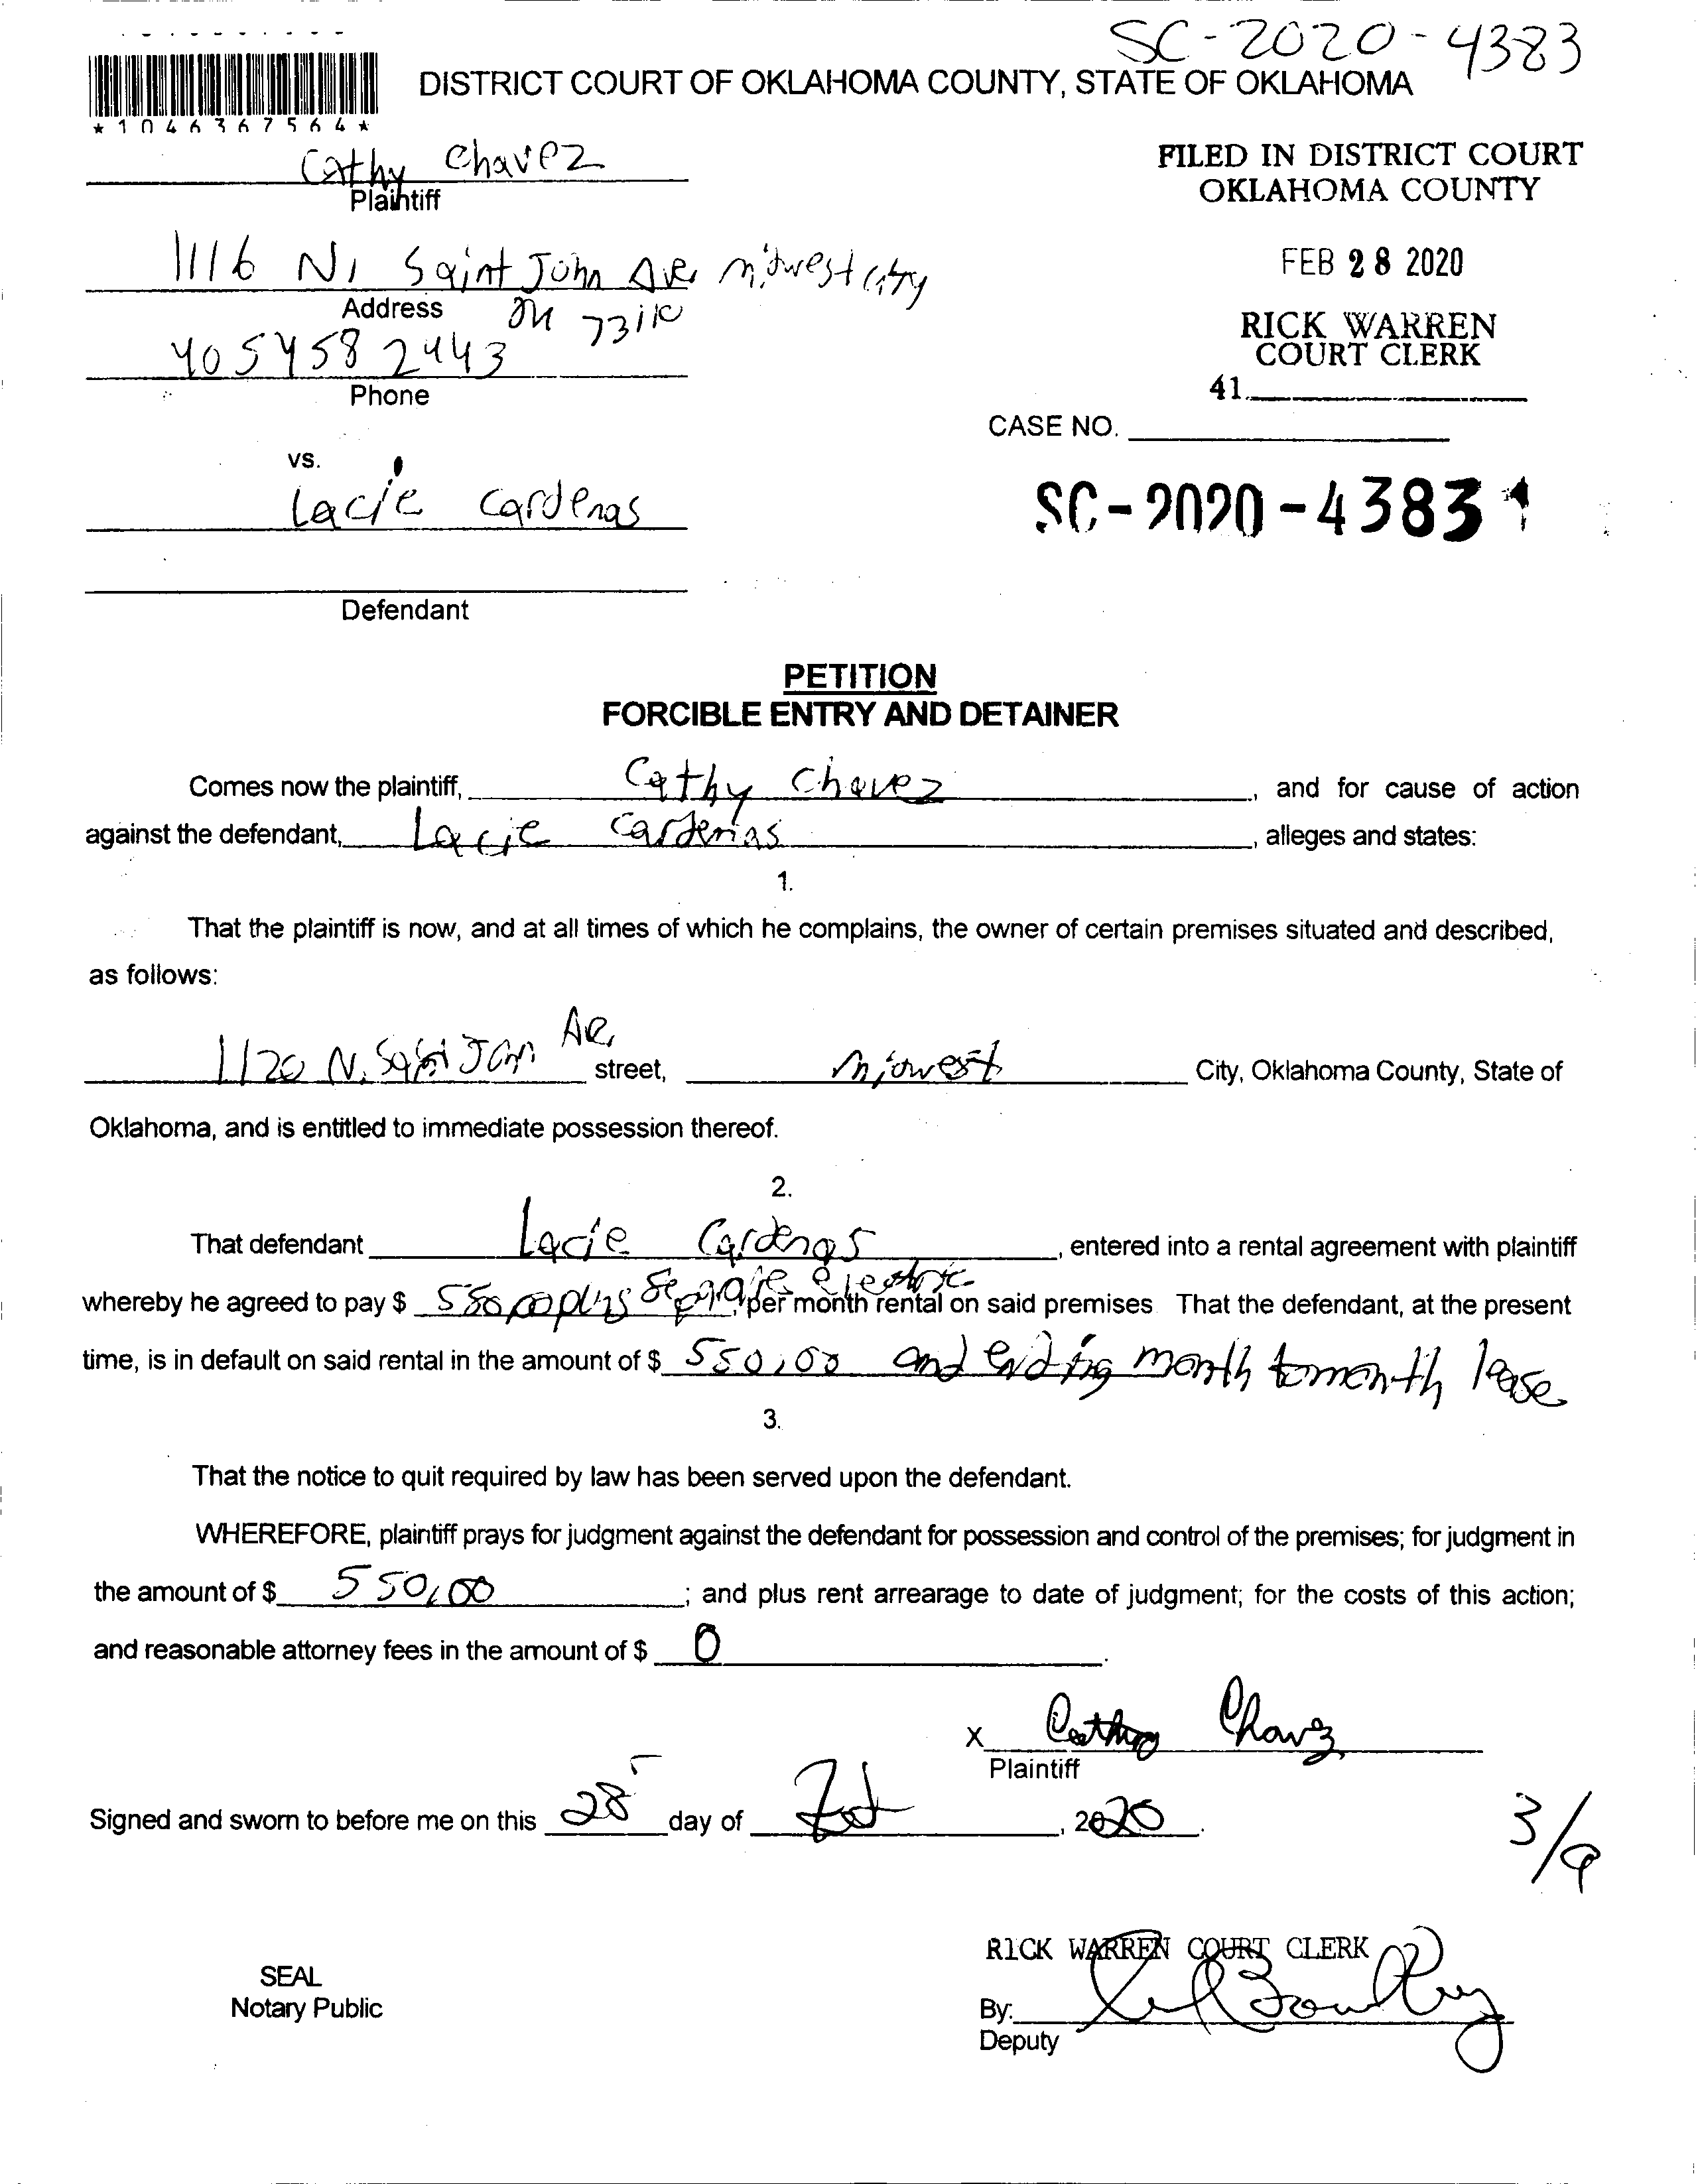 SC-2020-4383
DISTRICT COURT OF OKLAHOMA COUNTY, STATE OF OKLAHOMA
*1046367564*
Cathy Chavez
Plaintiff
FILED IN DISTRICT COURT
OKLAHOMA COUNTY
1116 N. Saint John Ave midwest city
Address
OK 73110
FEB 28 2020
4054582443
Phone
RICK WARREN
COURT CLERK
41
CASE NO.
vs.
Lacie Cardenas
SC-2020-4383
Defendant
PETITION
FORCIBLE ENTRY AND DETAINER
Comes now the plaintiff, Cathy Chavez, and for cause of action
against the defendant, Lacie Cardenas, alleges and states:
1.
That the plaintiff is now, and at all times of which he complains, the owner of certain premises situated and described,
as follows:
1120 N. Saint John Ave street, Midwest City, Oklahoma County, State of
Oklahoma, and is entitled to immediate possession thereof.
2.
That defendant Lacie Cardenas, entered into a rental agreement with plaintiff
whereby he agreed to pay $ 550.00 plus electric, per month rental on said premises. That the defendant, at the present
time, is in default on said rental in the amount of $ 550.00 and ending month to month lease
3.
That the notice to quit required by law has been served upon the defendant.
WHEREFORE, plaintiff prays for judgment against the defendant for possession and control of the premises; for judgment in
the amount of $ 550.00; and plus rent arrearage to date of judgment; for the costs of this action;
and reasonable attorney fees in the amount of $ 0.
X Cathy Chavez
Plaintiff
Signed and sworn to before me on this 28 day of Feb, 2020.
3/9
RICK WARREN COURT CLERK
SEAL
Notary Public
By:
Deputy